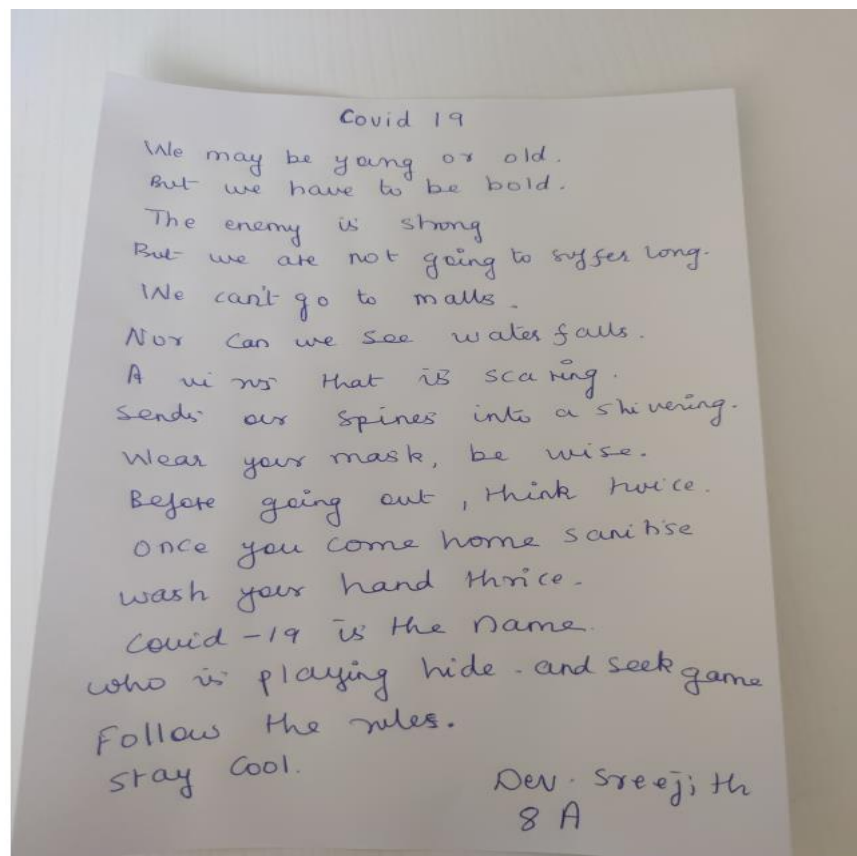 Covid 19
We may be young or old.
But we have to be bold.
The enemy is strong
But we are not going to suffer long.
We can't go to malls.
Nor can we see water falls.
A virus that is scaring.
Sends our spines into a shivering.
Wear your mask, be wise.
Before going out, think twice.
Once you come home sanitise
wash your hand thrice.
Covid-19 is the name.
who is playing hide-and seek game
Follow the rules.
Stay Cool.
Dev. Sreejith
8 A